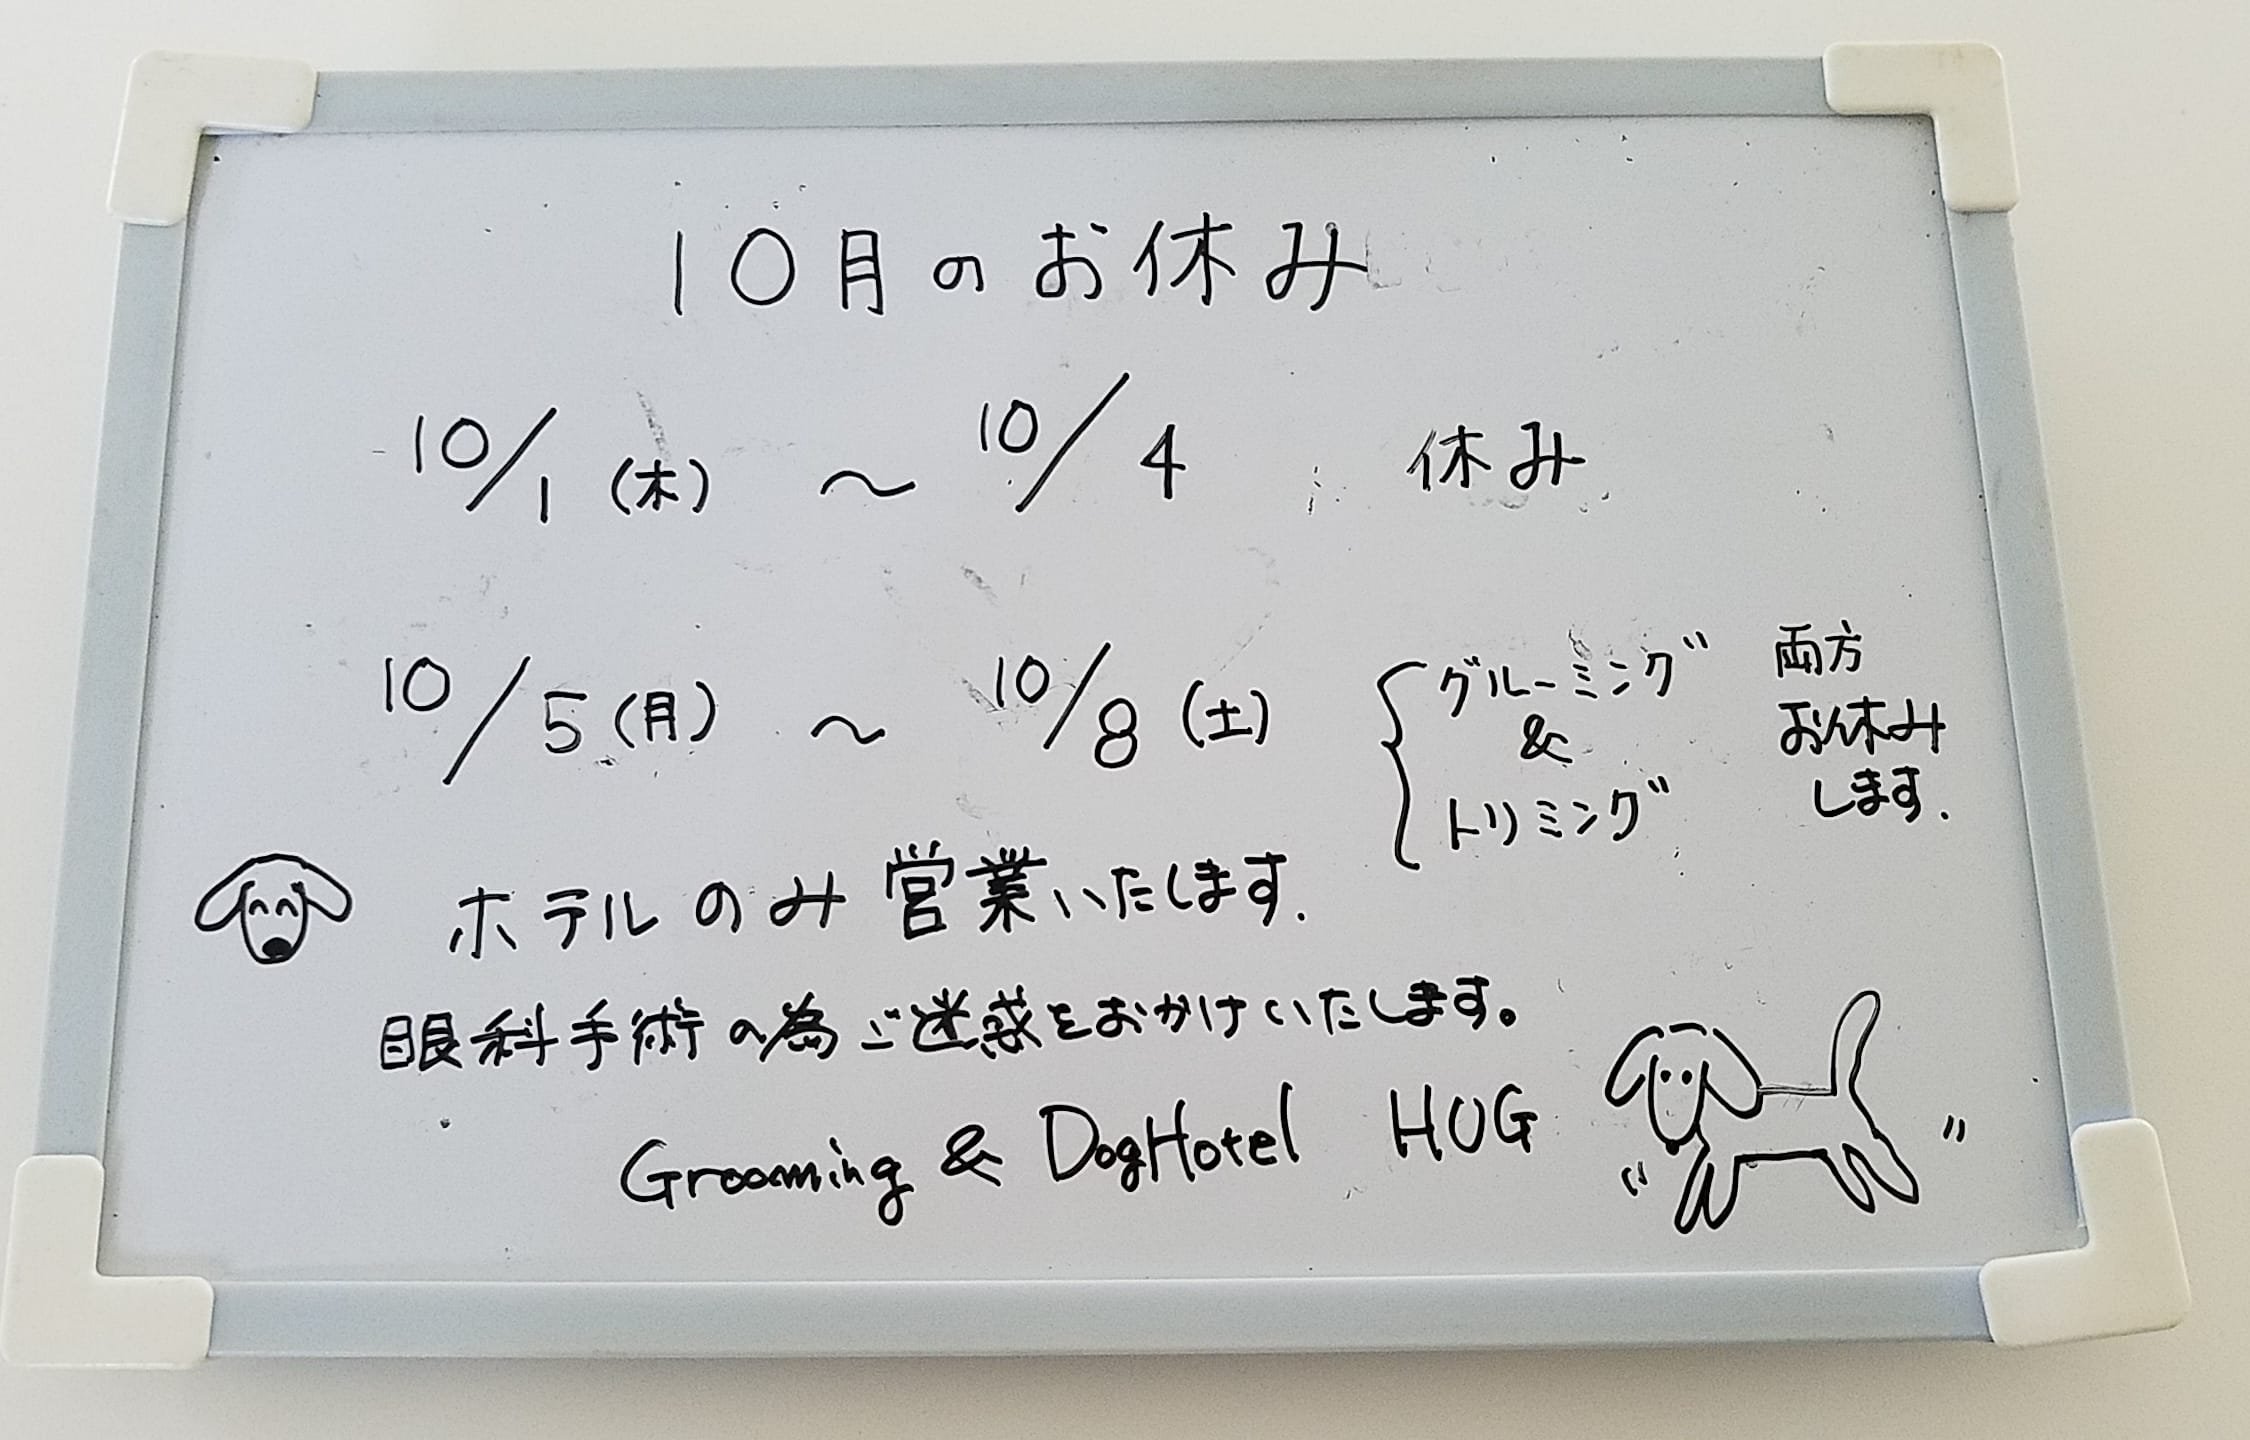 10月のお休み
10/1(木) 〜 10/4 休み
10/5(月) 〜 10/8(土) { グルーミング & トリミング 両方お休みします.
ホテルのみ営業いたします.
眼科手術の為ご迷惑をおかけいたします。
Grooming & DogHotel HUG